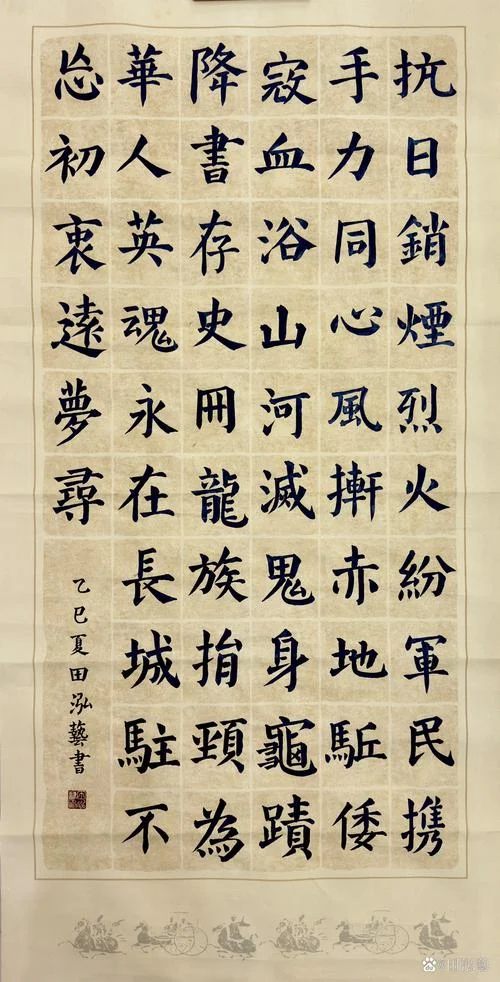 抗日銷煙烈火紛軍民携
手力同心風摲赤地駈倭
寇血浴山河滅鬼身龜蹟
降書存史冊龍族捐頸為
華人英魂永在長城駐不
忘初衷遠夢尋
乙巳夏田泓藝書